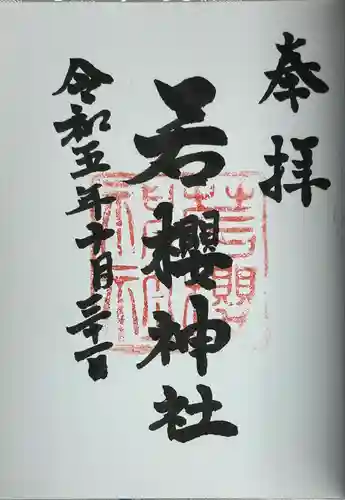 奉拝
若櫻神社
令和五年十月三十一日